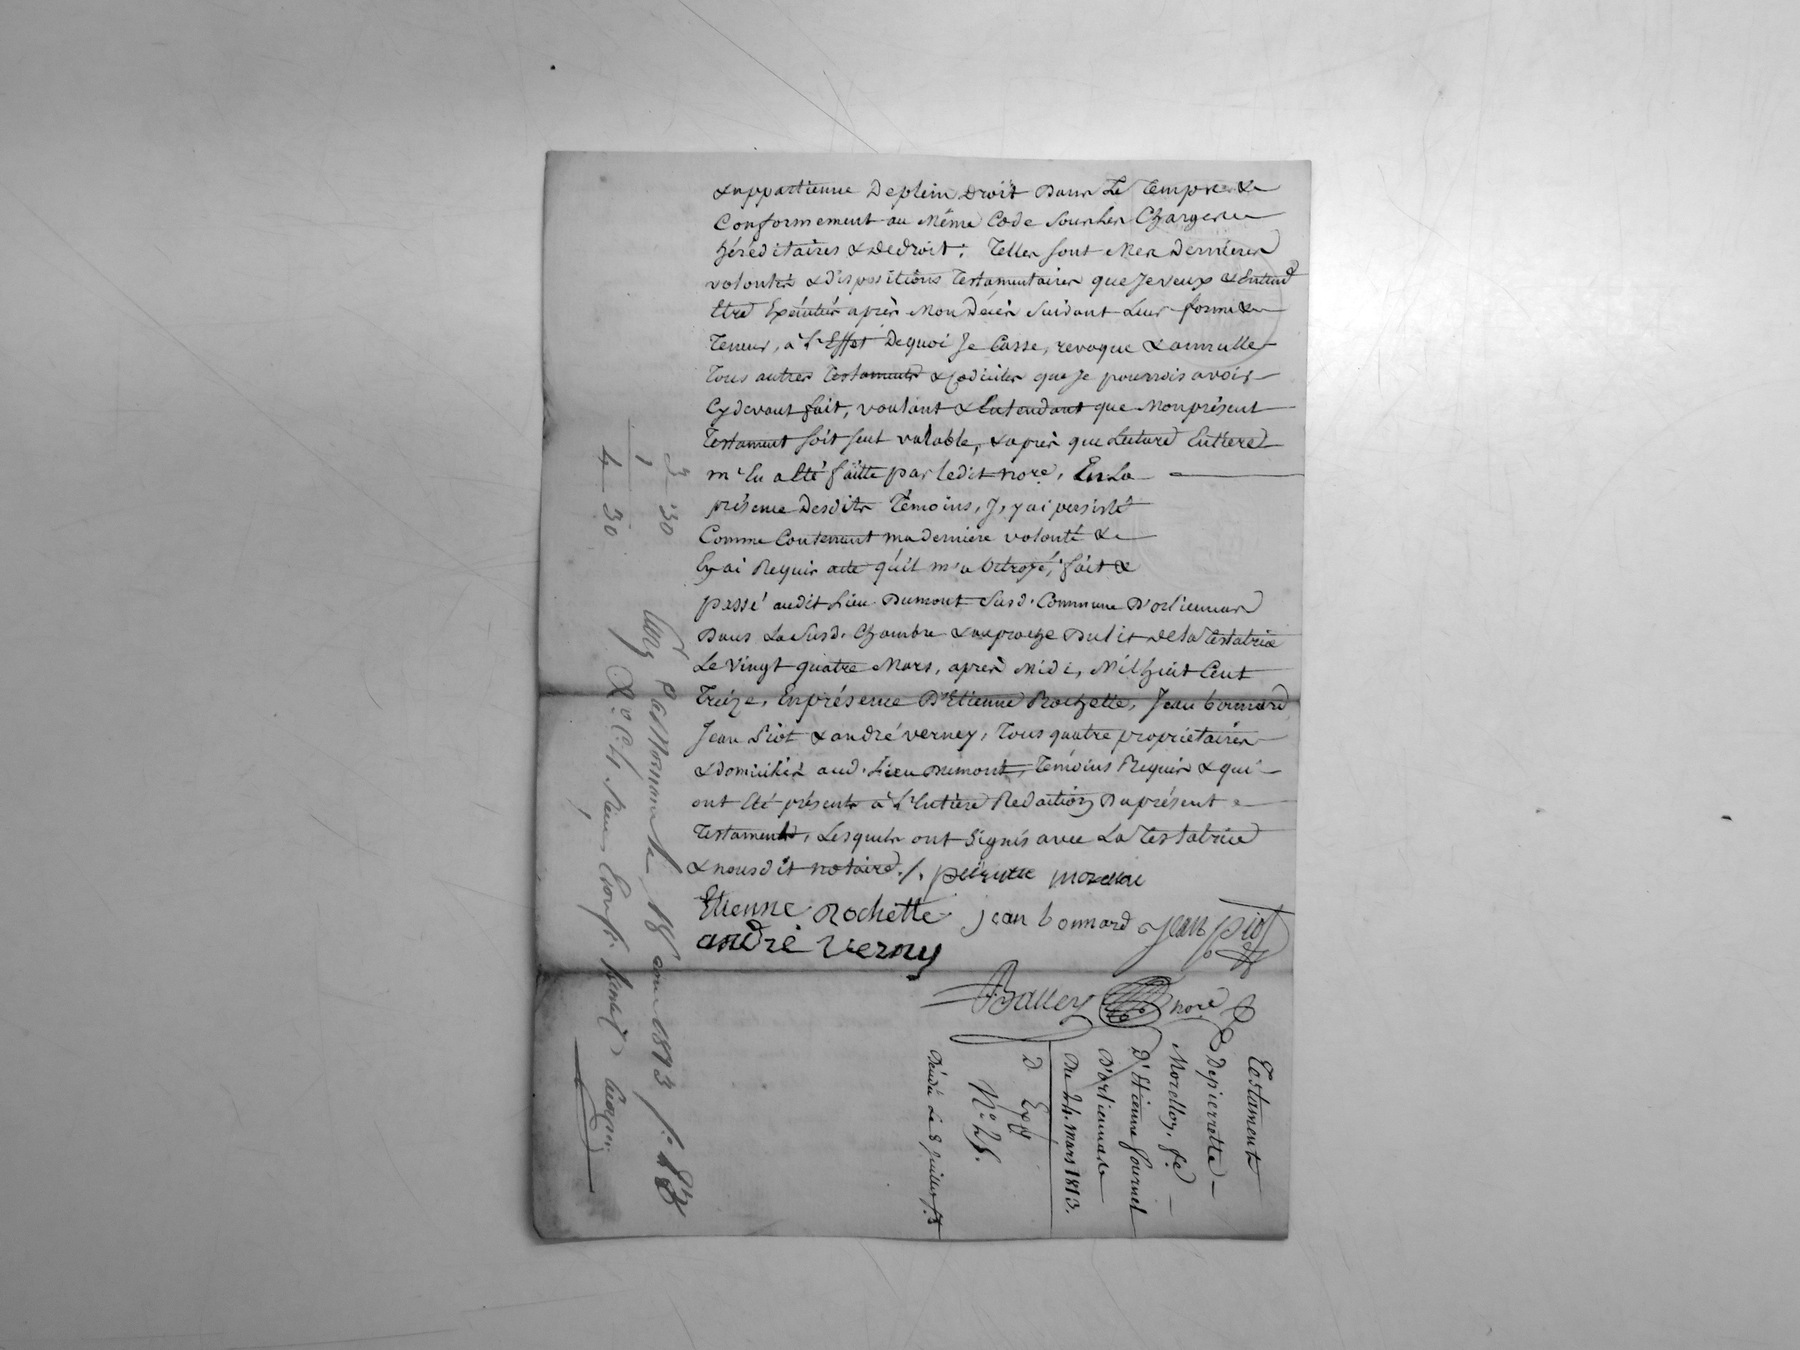 & appartienne De plein Droit Dans Le Temps &
Conformement au Même Code Sous Les Charges
héréditaires & De droit; Telles sont Mes Dernieres
volontés & dispositions Testamentaires que Je veux & Entend
Etre Exécutés après Mon Décès Suivant Leur forme &
Teneur, à L'Effet De quoi Je Casse, revoque & annulle
Tous autres Testaments & Codiciles que Je pourrois avoir
Cy devant fait, voulant & Entendant que Mon présent
Testament soit seul valable, & après que Lecture Entiere
m'En a Eté faitte par le dit nore, En La
présence Desdits Témoins, J'y ai persisté
Comme Contenant ma derniere volonté &
Ey ai Requis acte qu'il m'a Octroyé, fait &
passé audit Lieu Dumont Susd. Commune D'orlienas
Dans La Susd. Chambre & au proche Du lit de la Testatrice
Le vingt quatre Mars, après Midi, Mil huit Cent
Treize, En présence D'Etienne Rochette, Jean bonnard
Jean Piot & andré verney, Tous quatre propriétaires
& domiciliés aud. Lieu Dumont, Témoins Requis & qui
ont Eté présents à L'Entière Redaction Du présent
Testament, Lesquels ont Signés avec La Testatrice
& nous dit notaire ./.
Etienne Rochette jean bonnard Jean piot
andré verny
nore
Testament
De pierrette
Morellon, fe.
D'Etienne fournel
D'orlienas
Du 24. mars 1813.
D Exp
N° 25.
Le 8 juillet
3 30
1
4 30
18 1813 f° 183